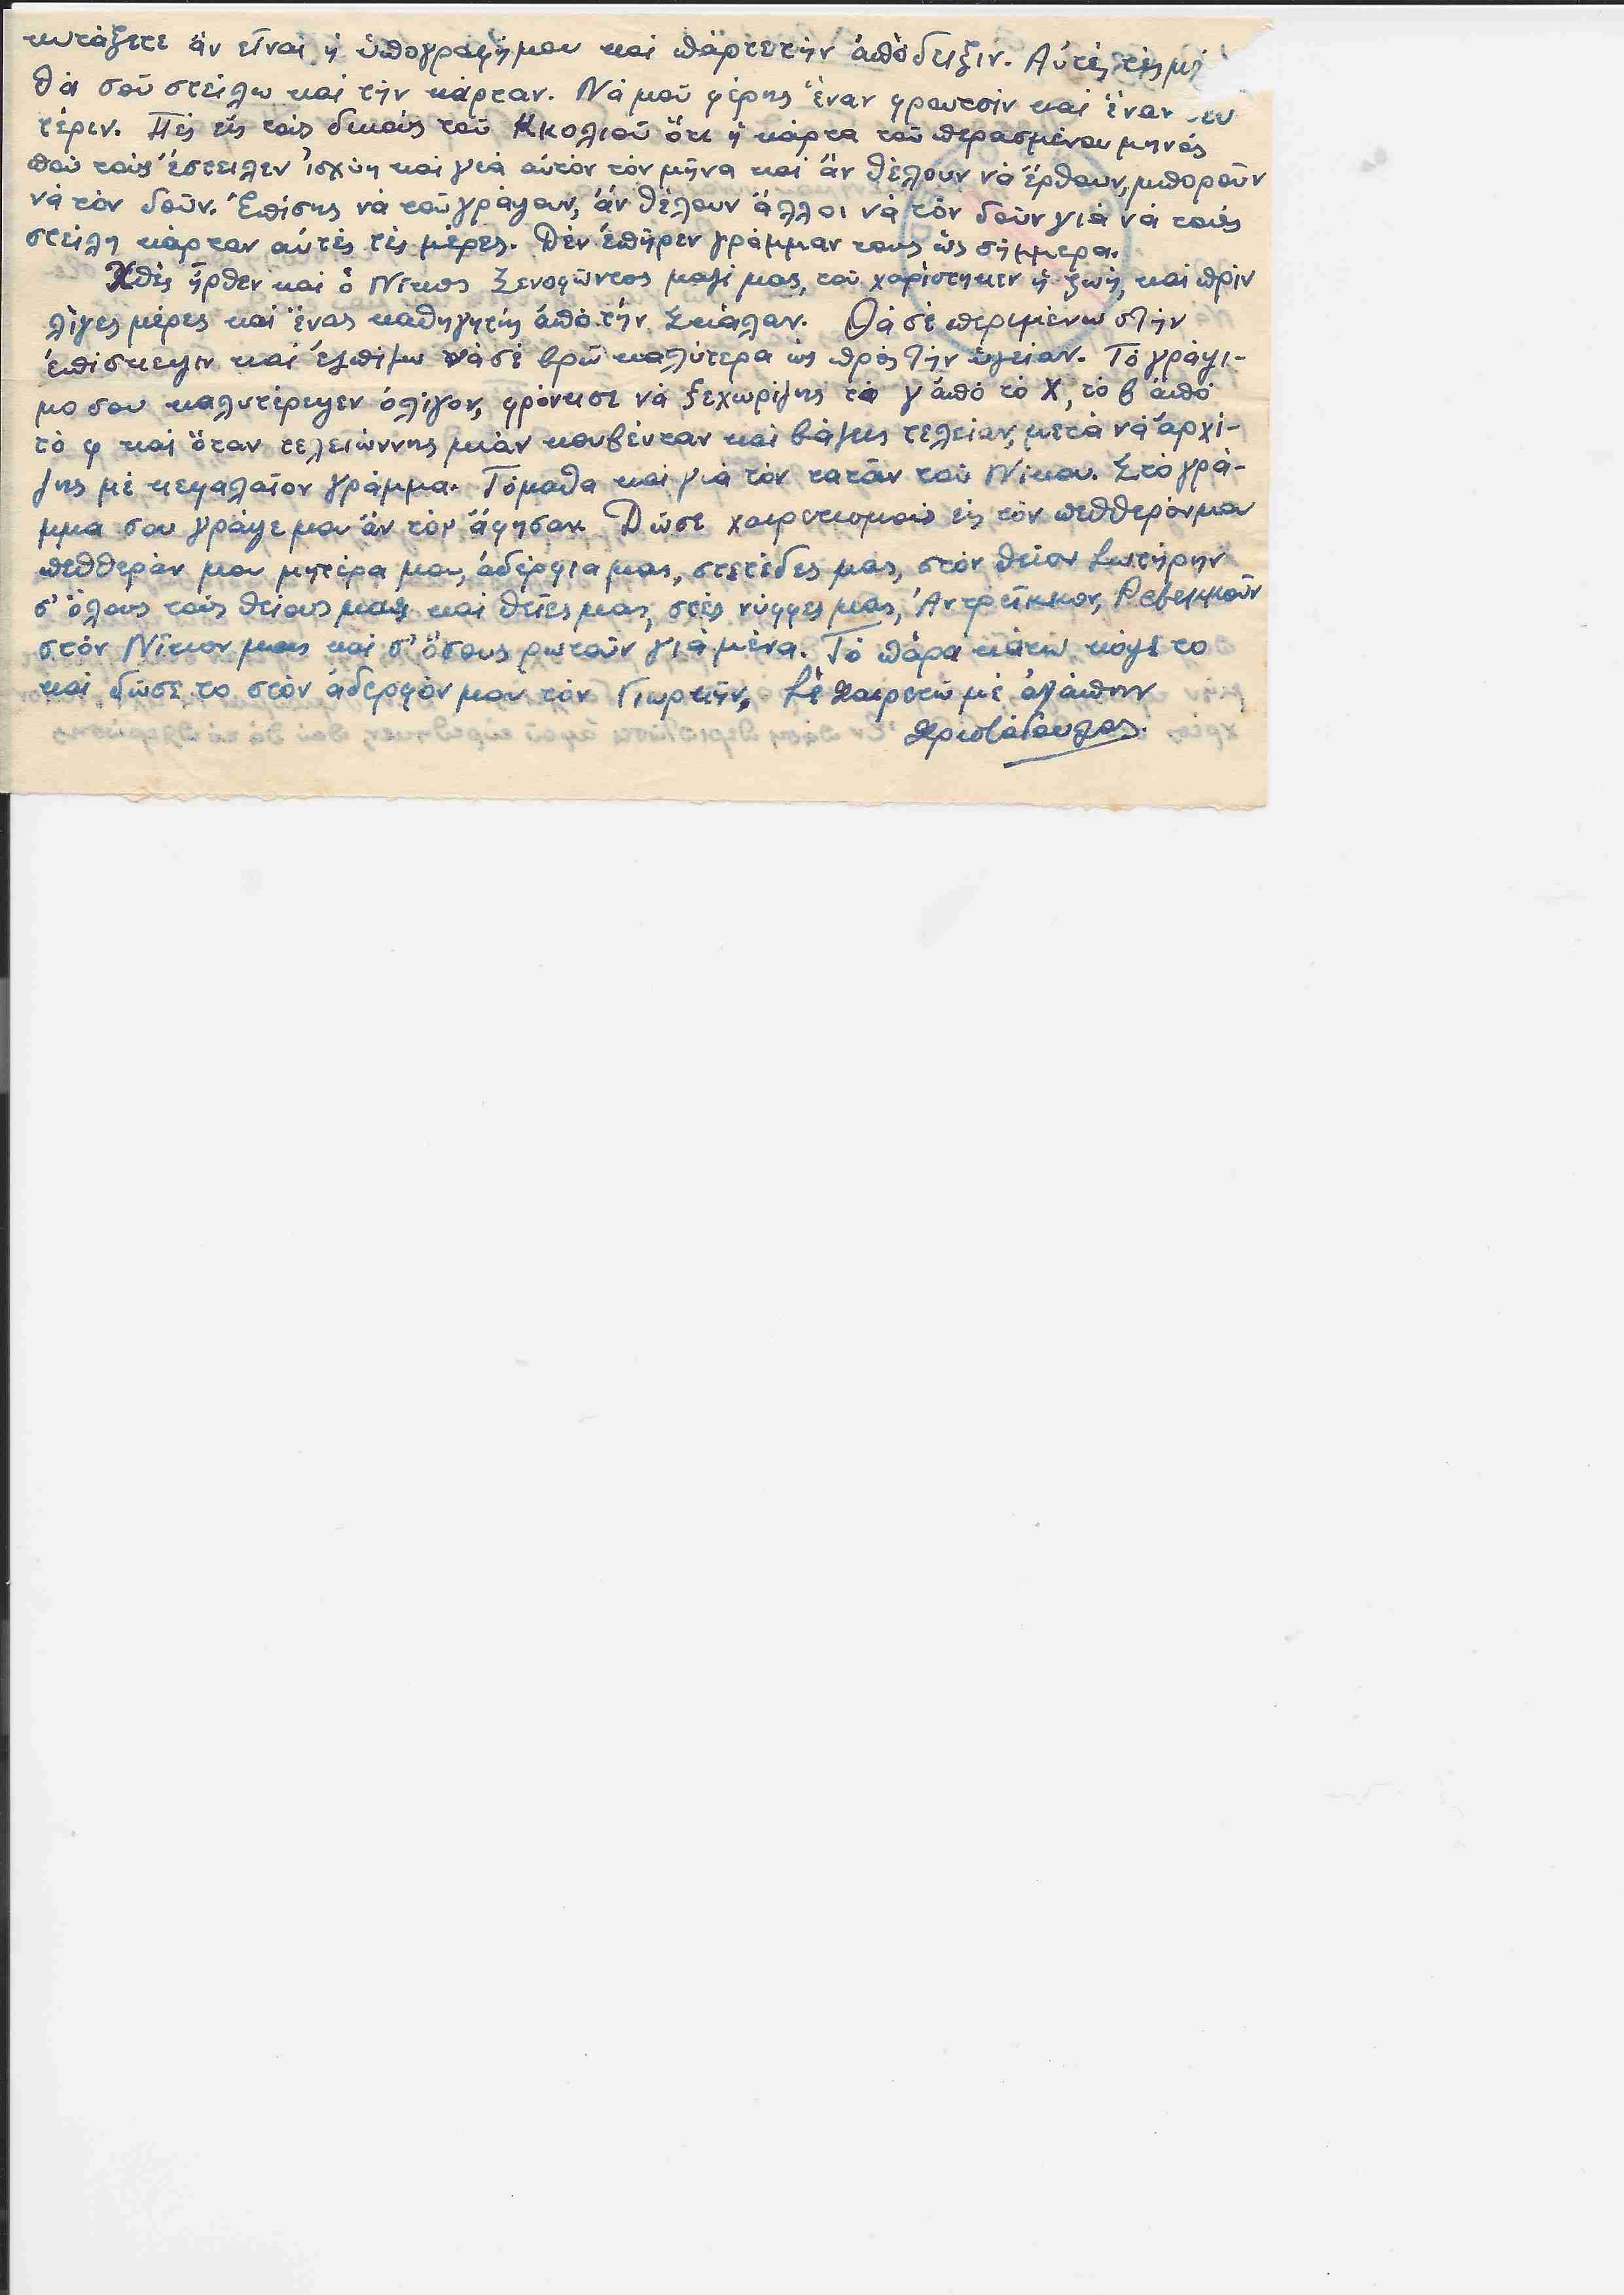 κυτάξετε ἄν εἶναι ἡ ὑπογραφή μου καί πάρτε τήν ἀπόδειξιν. Αὐτές τές
θά σοῦ στείλω καί τήν κάρταν. Νά μοῦ φέρης ἕναν φρουτσίν καί ἕναν
τέριν. Πές εἰς τούς δικούς τοῦ Κκολιοῦ ὅτι ἡ κάρτα τοῦ περασμένου μηνός
πού τούς ἔστειλεν ἰσχύη καί γιά αὐτόν τόν μῆνα καί ἄν θέλουν νά ἔρθουν, μποροῦν
νά τόν δοῦν. Ἐπίσης νά τοῦ γράψουν, ἄν θέλουν ἄλλοι νά τόν δοῦν γιά νά τούς
στείλη κάρταν αὐτές τίς μέρες. Δέν ἐπῆρεν γράμμαν τους ὥς σήμμερα.
Χθές ἦρθεν καί ὁ Νίκος Ξενοφῶντος μαζί μας, τοῦ χαρίστηκεν ἡ ζωή, καί πρίν
λίγες μέρες καί ἕνας καθηγητής ἀπό τήν Σκάλαν. Θά σέ περιμένω στήν
ἐπίσκεψιν καί ἐλπίζω νά σέ βρῶ καλύτερα ὡς πρός τήν ὑγείαν. Τό γράψι-
μο σου καλυτέρεψεν ὀλίγον, φρόντισε νά ξεχωρίζης τό γ ἀπό τό χ, τό β ἀπό
τό φ καί ὅταν τελειώννης μιάν κουβένταν καί βάζεις τελείαν, μετά νά ἀρχί-
ζης μέ κεφαλαῖον γράμμα. Τόμαθα καί γιά τόν τατᾶν τοῦ Νίκου. Στό γρά-
μμα σου γράψε μου ἄν τόν ἄφησαν. Δῶσε χαιρετισμούς εἰς τόν πεθθερόν μου
πεθθεράν μου μητέρα μου, ἀδέρφια μας, στετέδες μας, στόν θεῖον Σωτήρην
σ' ὅλους τούς θείους μας καί θεῖες μας, στές νύφφες μας, Ἀντρεῖκκον, Ρεβεκκοῦν
στόν Νίκον μας καί σ' ὅσους ρωτοῦν γιά μένα. Τό πάρα κάτω κόψε το
καί δῶσε το στόν ἀδερφόν μου τόν Γιωρκῆν. Σέ χαιρετῶ μέ ἀγάπην
Χριστόδουλος.